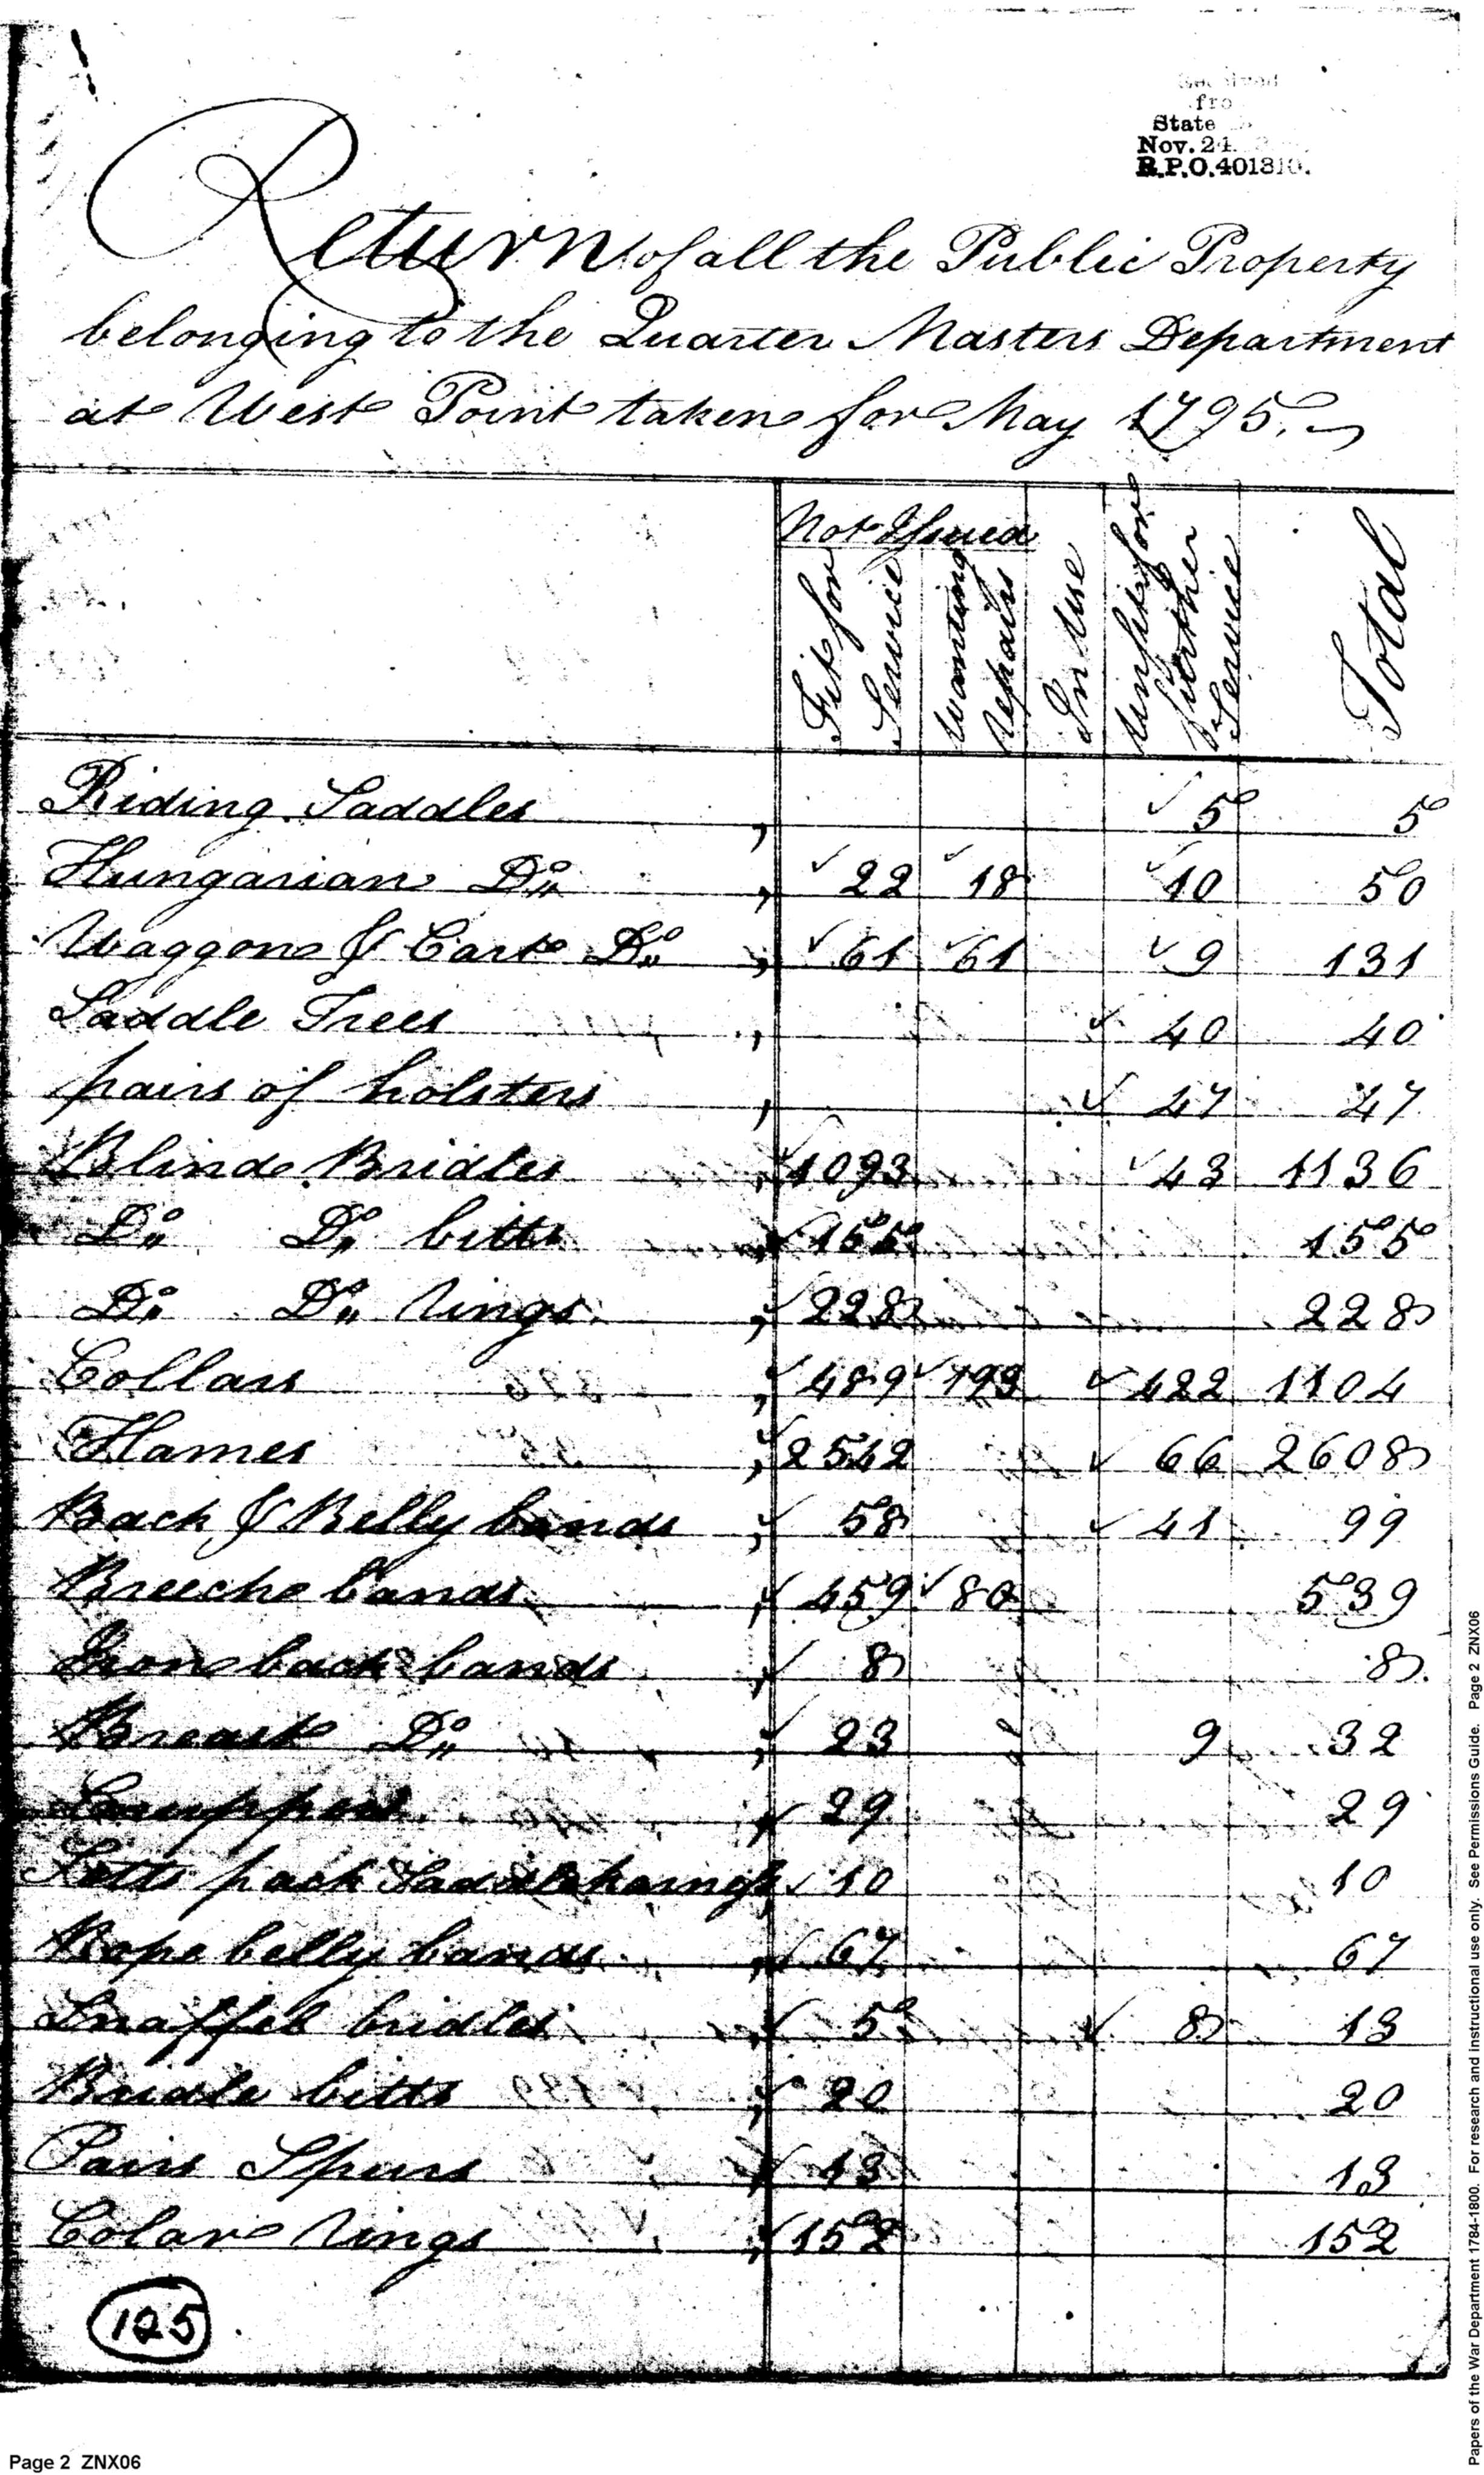 from
State
Nov. 24.
R.P.O. 401310.
Return of all the Public Property
belonging to the Quarter Masters Department
at West Point taken for May 1795.
Not Issued
Fit for Service
Wanting repairs
In Use
Unfit for further Service
Total
Riding Saddles 5 5
Hungarian Do 22 18 10 50
Waggon & Cart Do 61 61 9 131
Saddle Trees 40 40
pairs of holsters 47 47
Blind Bridles 1093 43 1136
Do Do bitts 155 155
Do Do rings 228 228
Collars 489 193 422 1104
Hames 2542 66 2608
Back & Belly bands 58 41 99
Breech bands 459 80 539
Iron back bands 8 8
Breast Do 23 9 32
Cruppers 29 29
Setts pack Saddle harness 10 10
Rope belly bands 67 67
Snaffel bridles 5 8 13
Bridle bitts 20 20
Pairs Spurs 13 13
Colar rings 152 152
125
Page 2 ZNX06
Papers of the War Department 1784-1800. For research and instructional use only. See Permissions Guide. Page 2 ZNX06